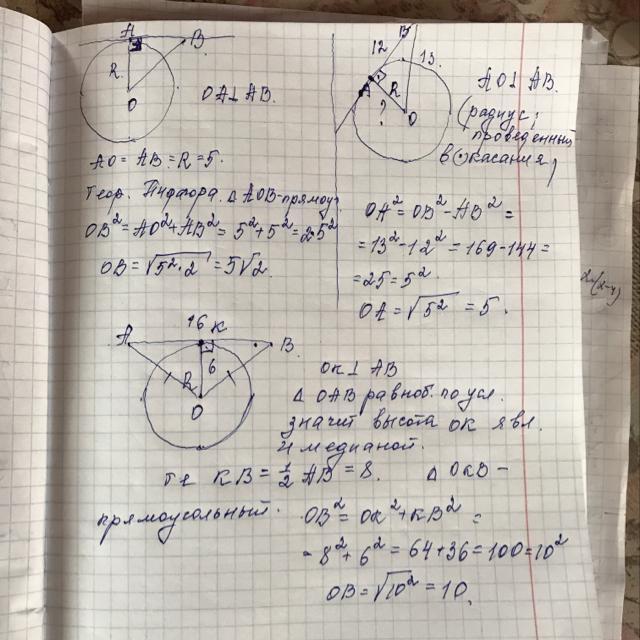 A
B
R
O
OA⊥AB.
AO = AB = R = 5.
Теор. Пифагора. △ AOB-прямоуг
OB² = AO² + AB² = 5² + 5² = 2·5²
OB = √5²·2 = 5√2.
B
12
13.
A
R
?
O
AO⊥AB.
(радиус,
проведенный
в (·) касания)
OA² = OB² - AB² =
= 13² - 12² = 169 - 144 =
= 25 = 5²
OA = √5² = 5.
16
A
K
B
6
R
O
OK⊥AB
△ OAB равноб. по усл.
значит высота OK явл.
и медианой.
те KB = 1/2 AB = 8. △ OKB -
прямоугольный.
OB² = OK² + KB² =
= 8² + 6² = 64 + 36 = 100 = 10²
OB = √10² = 10.